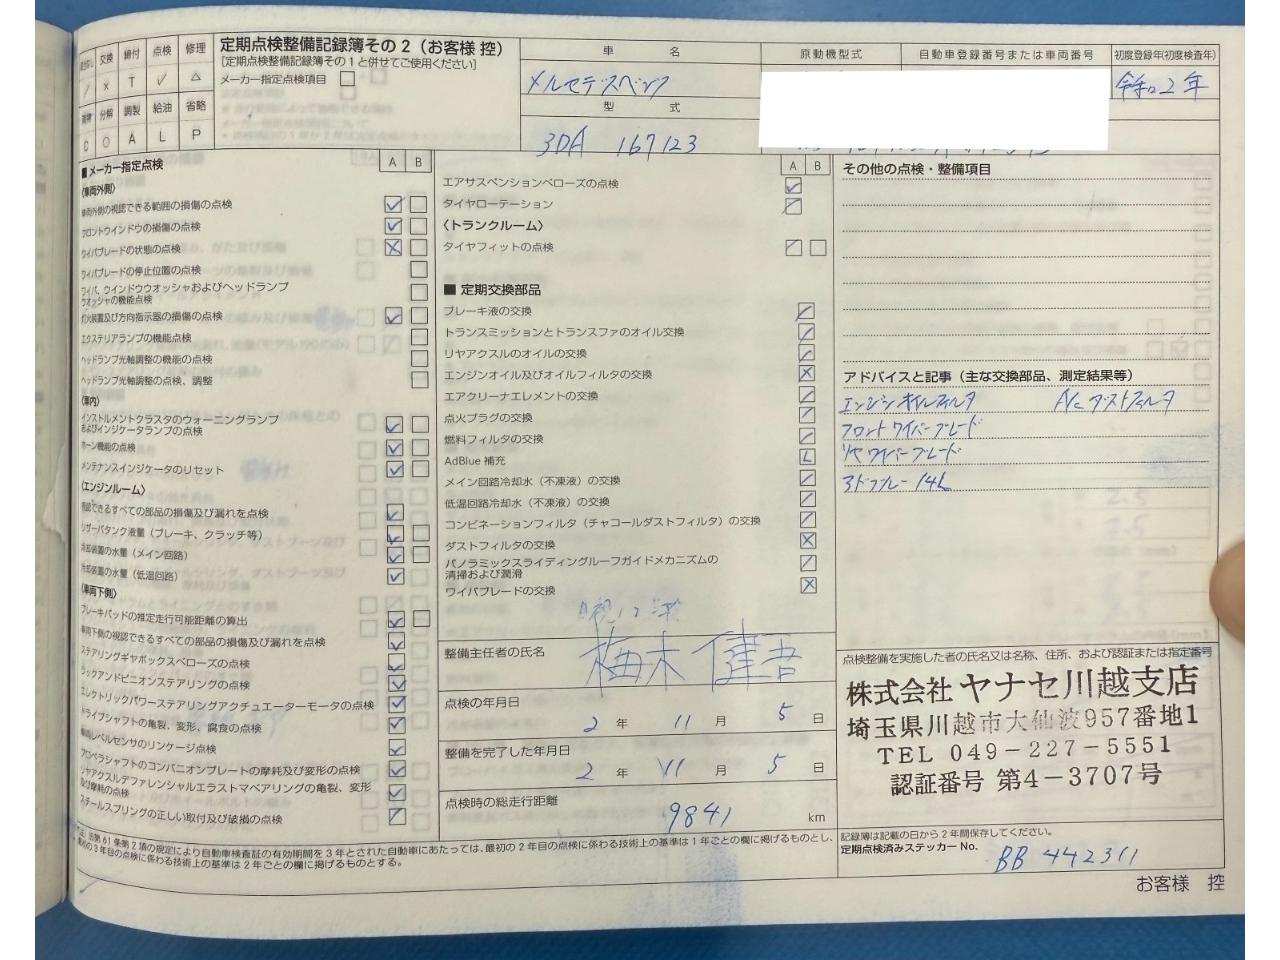 交換 締付 点検 修理
/ × T ✓ △
分解 調製 給油 省略
C O A L P
定期点検整備記録簿その2（お客様 控）
[定期点検整備記録簿その1と併せてご使用ください]
メーカー指定点検項目
車 名
メルセデスベンツ
型 式
3DA 167123
原動機型式
自動車登録番号または車両番号
初度登録年(初度検査年)
令和2年
■メーカー指定点検
A B
〈車両外側〉
車両外側の視認できる範囲の損傷の点検
フロントウインドウの損傷の点検
ワイパブレードの状態の点検
ワイパブレードの停止位置の点検
ワイパ、ウインドウウオッシャおよびヘッドランプ
ウオッシャの機能点検
灯火装置及び方向指示器の損傷の点検
エクステリアランプの機能点検
ヘッドランプ光軸調整の機能の点検
ヘッドランプ光軸調整の点検、調整
〈車内〉
インストルメントクラスタのウォーニングランプ
およびインジケータランプの点検
ホーン機能の点検
メンテナンスインジケータのリセット
〈エンジンルーム〉
視認できるすべての部品の損傷及び漏れを点検
リザーバタンク液量（ブレーキ、クラッチ等）
冷却装置の水量（メイン回路）
冷却装置の水量（低温回路）
〈車両下側〉
ブレーキパッドの推定走行可能距離の算出
車両下側の視認できるすべての部品の損傷及び漏れを点検
ステアリングギヤボックスベローズの点検
ラックアンドピニオンステアリングの点検
エレクトリックパワーステアリングアクチュエーターモータの点検
ドライブシャフトの亀裂、変形、腐食の点検
車両レベルセンサのリンケージ点検
プロペラシャフトのコンパニオンプレートの摩耗及び変形の点検
リヤアクスルデファレンシャルエラストマベアリングの亀裂、変形
及び摩耗の点検
スチールスプリングの正しい取付及び破損の点検
A B
エアサスペンションベローズの点検
タイヤローテーション
〈トランクルーム〉
タイヤフィットの点検
■ 定期交換部品
ブレーキ液の交換
トランスミッションとトランスファのオイル交換
リヤアクスルのオイルの交換
エンジンオイル及びオイルフィルタの交換
エアクリーナエレメントの交換
点火プラグの交換
燃料フィルタの交換
AdBlue 補充 L
メイン回路冷却水（不凍液）の交換
低温回路冷却水（不凍液）の交換
コンビネーションフィルタ（チャコールダストフィルタ）の交換
ダストフィルタの交換
パノラミックスライディングルーフガイドメカニズムの
清掃および潤滑
ワイパブレードの交換
整備主任者の氏名
梅木 健吾
点検の年月日
2 年 11 月 5 日
整備を完了した年月日
2 年 11 月 5 日
点検時の総走行距離
9841 km
その他の点検・整備項目
アドバイスと記事（主な交換部品、測定結果等）
エンジンオイルフィルタ A/Cダストフィルタ
フロントワイパーブレード
リヤワイパーブレード
アドブルー 14L
点検整備を実施した者の氏名又は名称、住所、および認証または指定番号
株式会社 ヤナセ川越支店
埼玉県川越市大仙波957番地1
TEL 049-227-5551
認証番号 第4-3707号
第61条第2項の規定により自動車検査証の有効期間を3年とされた自動車にあたっては、最初の2年目の点検に係わる技術上の基準は1年ごとの欄に掲げるものとし、
最初の3年目の点検に係わる技術上の基準は2年ごとの欄に掲げるものとする。
記録簿は記載の日から2年間保存してください。
定期点検済みステッカー No.
BB 442311
お客様 控